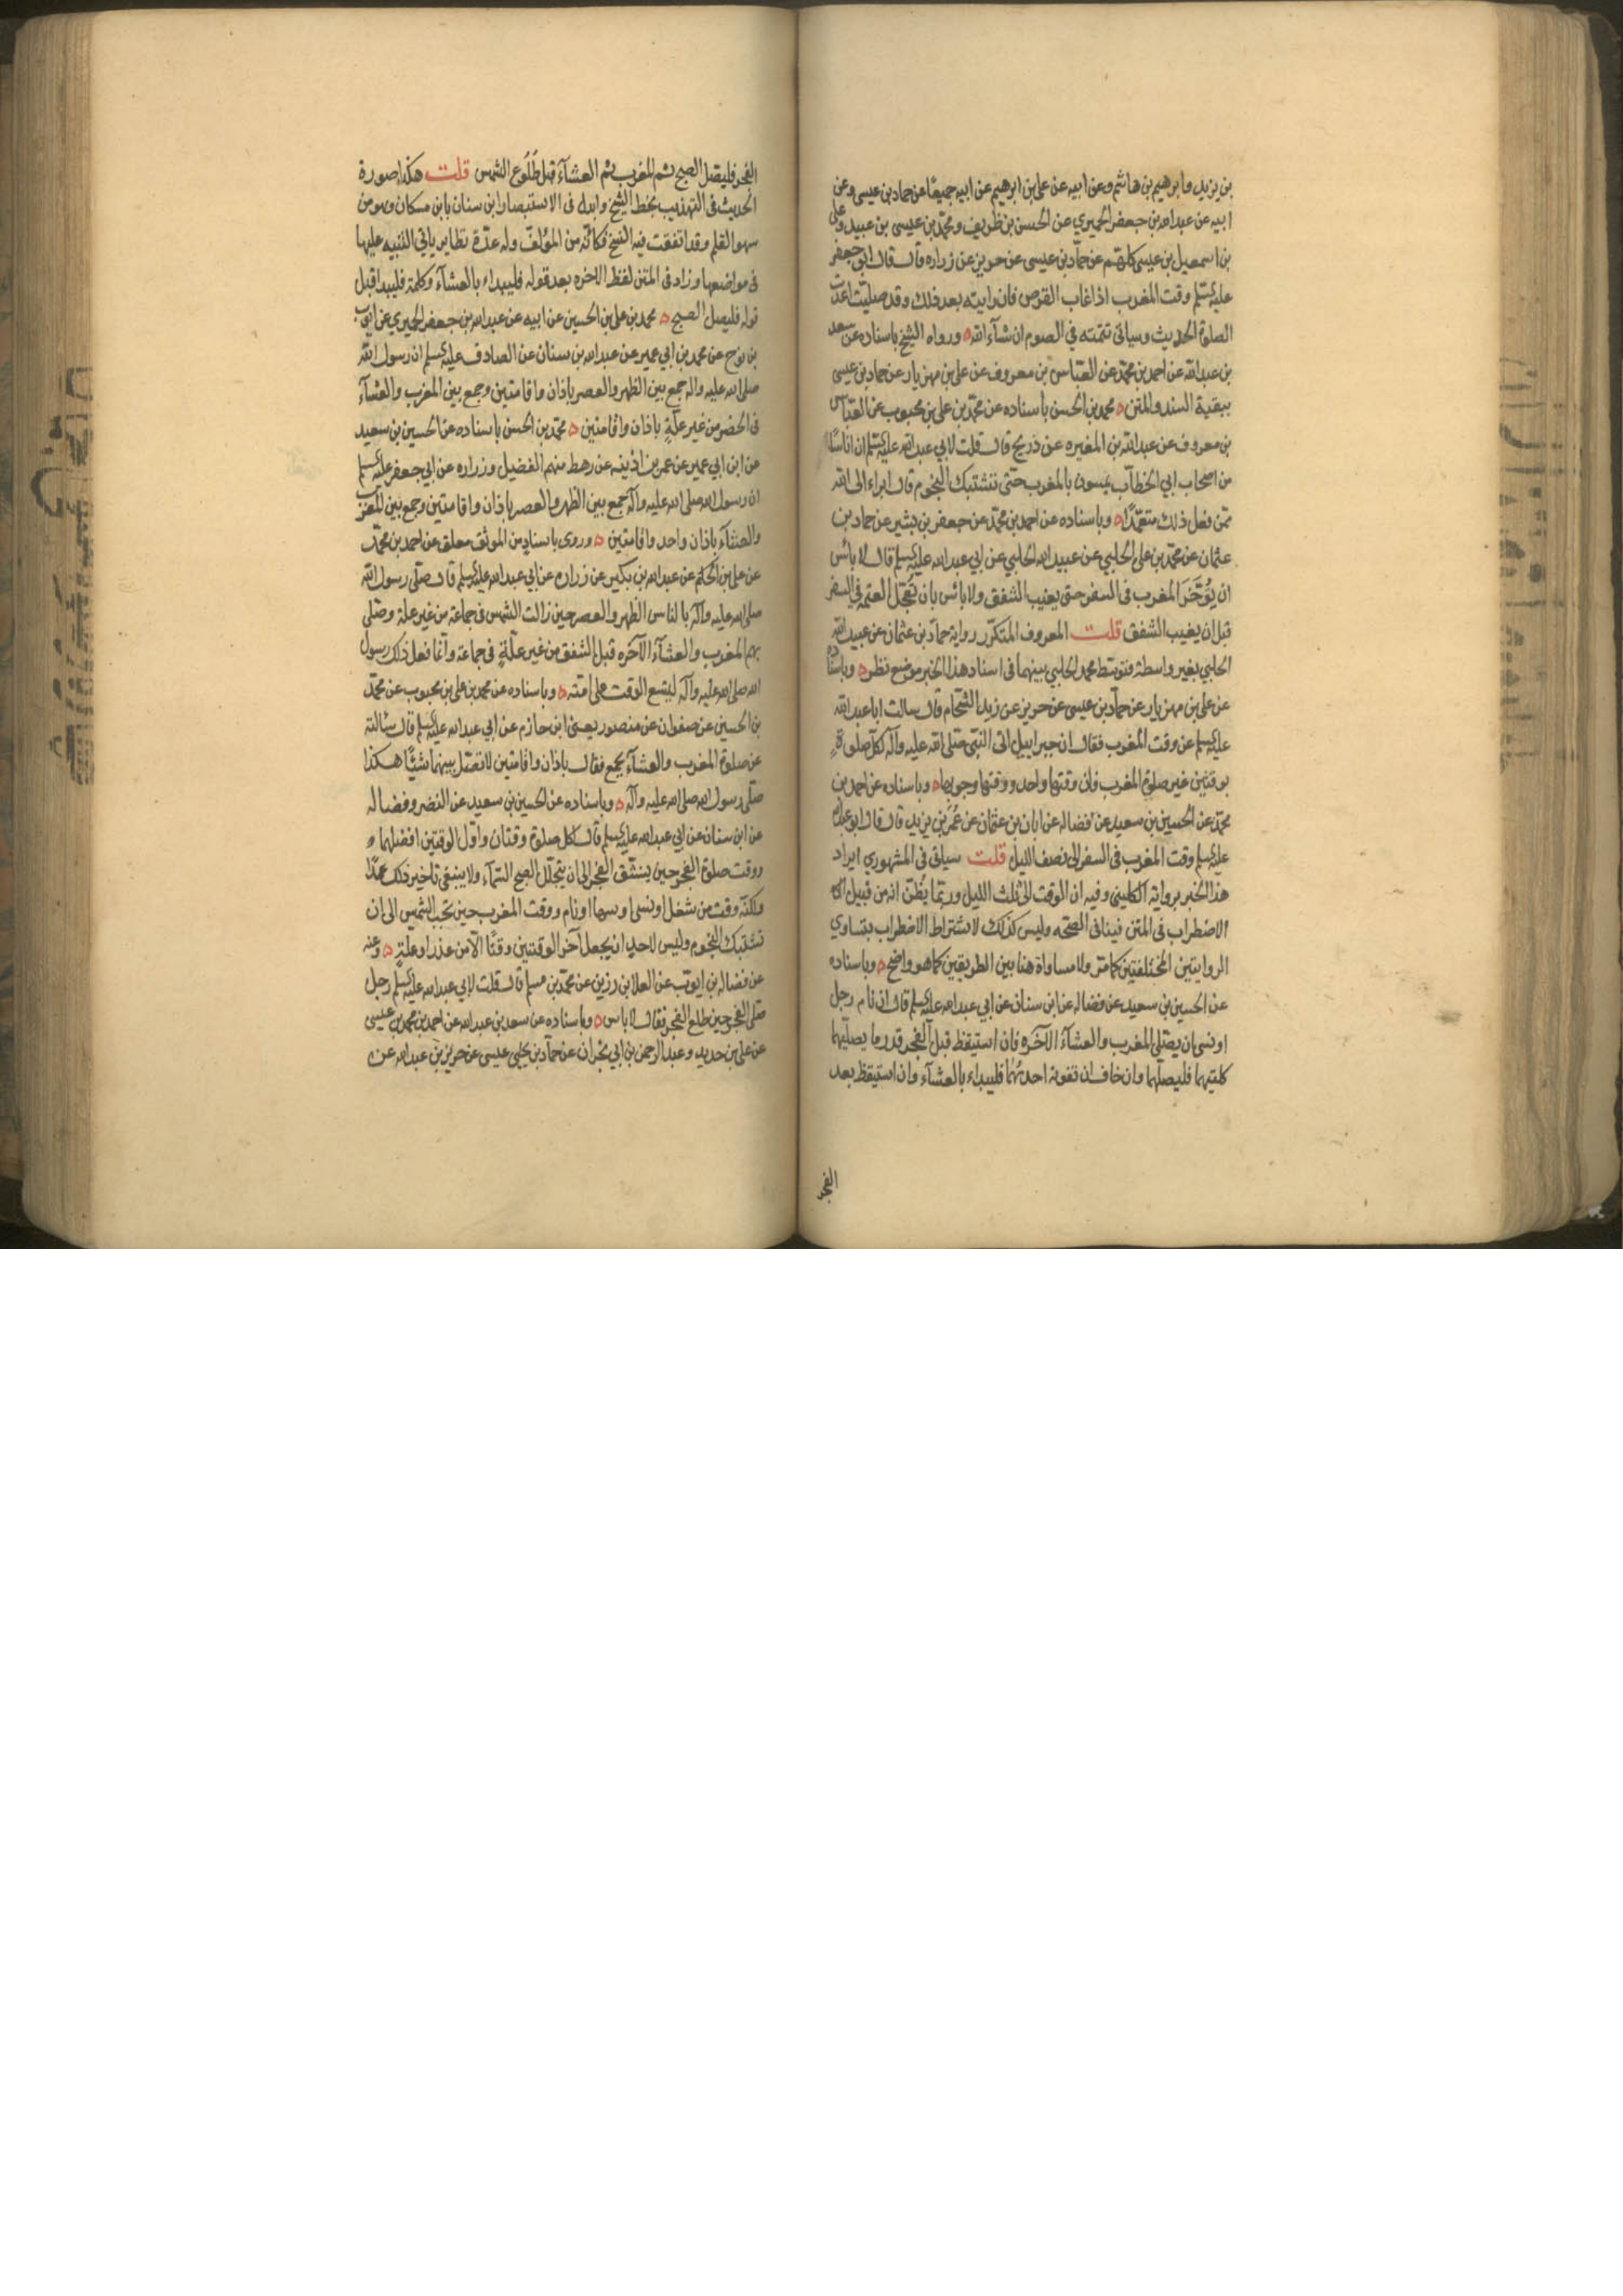 بن يزيد وابرهيم بن هاشم وعن ابيه عن علي بن ابرهيم عن ابيه جميعًا عن حماد بن عيسى وعن
ابيه عن عبد الله بن جعفر الحميري عن الحسن بن ظريف ومحمد بن عيسى بن عبيد وعلي
بن اسمعيل بن عيسى كلهم عن حماد بن عيسى عن حريز عن زراره قال قال ابو جعفر
عليه السلم وقت المغرب اذا غاب القرص فان رايته بعد ذلك وقد صليت اعدت
الصلوة الحديث وسياتى تتمته في الصوم ان شآء الله ورواه الشيخ باسناده عن سعد
بن عبد الله عن احمد بن محمد عن العباس بن معروف عن علي بن مهزيار عن حماد بن عيسى
ببقية السند والمتن محمد بن الحسن باسناده عن محمد بن علي بن محبوب عن العباس
بن معروف عن عبد الله بن المغيره عن ذريح قال قلت لابي عبد الله عليه السلم ان اناسًا
من اصحاب ابي الخطاب يمسون بالمغرب حتى تشتبك النجوم قال ابراء الى الله
ممن فعل ذلك متعمدًا وباسناده عن احمد بن محمد عن جعفر بن بشير عن حماد بن
عثمان عن محمد بن علي الحلبي عن عبيد الله الحلبي عن ابي عبد الله عليه السلم قال لا باس
ان يُؤخَّرَ المغرب فى السفر حتى يغيب الشفق ولا باس بان تعجل العتمه في السفر
قبل ان يغيب الشفق قلت المعروف المتكرر رواية حماد بن عثمان عن عبيد الله
الحلبي بغير واسطة فتوسط محمد الحلبي بينهما في اسناد هذا الخبر موضع نظر وباسناده
عن علي بن مهزيار عن حماد بن عيسى عن حريز عن زيد الشحام قال سالت ابا عبد الله
عليه السلم عن وقت المغرب فقال ان جبرايل اتى النبي صلى الله عليه وآله لكل صلوة
بوقتين غير صلوة المغرب فان وقتها واحد ووقتها وجوبها وباسناده عن احمد بن
محمد عن الحسين بن سعيد عن فضاله عن ابان بن عثمان عن عمر بن يزيد قال قال ابو عبد الله
عليه السلم وقت المغرب فى السفر الى نصف الليل قلت سياتى فى المشهوري ايراد
هذا الخبر برواية الكليني وفيه ان الوقت الى ثلث الليل وربما يُظن انه من قبيل
الاضطراب فى المتن فينافى الصحه وليس كذلك لاشتراط الاضطراب بتساوي
الروايتين المختلفتين كما مر ولا مساواة هنا بين الطريقين كما هو واضح وباسناده
عن الحسين بن سعيد عن فضاله عن ابن سنان عن ابي عبد الله عليه السلم قال ان نام رجل
او نسى ان يصلى المغرب والعشآء الآخره فان استيقظ قبل الفجر قدر ما يصليهما
كلتيهما فليصلهما وان خاف ان تفوته احديهما فليبداء بالعشآء وان استيقظ بعد
الفجر
الفجر فليصل الصبح ثم المغرب ثم العشآء قبل طُلُوع الشمس قلت هكذا صورة
الحديث فى التهذيب بخط الشيخ وابدل فى الاستبصار ابن سنان بابن مسكان وهو من
سهو القلم وقد اتفقت فيه النسخ فكأنه من المؤلف وله عدة نظاير ياتي التنبيه عليها
فى مواضعها وزاد فى المتن لفظ الآخره بعد قوله فليبداء بالعشآء وكلمة فليبدا قبل
قوله فليصل الصبح محمد بن علي بن الحسين عن ابيه عن عبد الله بن جعفر الحميري عن ايوب
بن نوح عن محمد بن ابي عمير عن عبد الله بن سنان عن الصادق عليه السلم ان رسول الله
صلى الله عليه واله جمع بين الظهر والعصر باذان واقامتين وجمع بين المغرب والعشآء
فى الحضر من غير علةٍ باذان واقامتين محمد بن الحسن باسناده عن الحسين بن سعيد
عن ابن ابي عمير عن عمر بن اذينه عن رهط منهم الفضيل وزراره عن ابي جعفر عليه السلم
ان رسول الله صلى الله عليه وآله جمع بين الظهر والعصر باذان واقامتين وجمع بين المغرب
والعشآء باذان واحد واقامتين وروى باسناد من الموثق معلق عن احمد بن محمد
عن علي بن الحكم عن عبد الله بن بكير عن زراره عن ابي عبد الله عليه السلم قال صلى رسول الله
صلى الله عليه وآله بالناس الظهر والعصر حين زالت الشمس فى جماعة من غير علة وصلى
بهم المغرب والعشآء الآخره قبل الشفق من غير علّةٍ في جماعة وانما فعل ذلك رسول
الله صلى الله عليه وآله ليتسع الوقت على امته وباسناده عن محمد بن علي بن محبوب عن محمد
بن الحسين عن صفوان عن منصور يعنى ابن حازم عن ابي عبد الله عليه السلم قال سالته
عن صلوة المغرب والعشآء بجمع فقال باذان واقامتين لا تصل بينهما شيئًا هكذا
صلى رسول الله صلى الله عليه وآله وباسناده عن الحسين بن سعيد عن النضر وفضاله
عن ابن سنان عن ابي عبد الله عليه السلم قال لكل صلوة وقتان واول الوقتين افضلهما و
ووقت صلوة الفجر حين ينشق الفجر الى ان يتجلل الصبح السمآء ولا ينبغى تاخير ذلك عمدًا
ولكنه وقت من شغل او نسى او سها او نام ووقت المغرب حين تجب الشمس الى ان
تشتبك النجوم وليس لاحدٍ ان يجعل آخر الوقتين وقتًا الا من عذر او علةٍ وعنه
عن فضاله بن ايوب عن العلا بن رزين عن محمد بن مسلم قال قلت لابي عبد الله عليه السلم رجل
صلى الفجر حين طلع الفجر فقال لا باس وباسناده عن سعد بن عبد الله عن احمد بن محمد بن عيسى
عن علي بن حديد وعبد الرحمن بن ابي نجران عن حماد بن عيسى عن حريز بن عبد الله عن